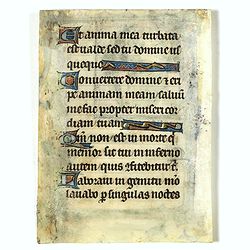 Et anima mea turbata
est ualde sed tu domine us
quequo
Conuertere domine & eri
pe animam meam saluu
me fac propter misericor
diam tuam
Qm non est in morte q
memor sit tui in inferno
autem quis 9fitebitur t
Laboraui in gemitu meo
lauabo p singulas noctes